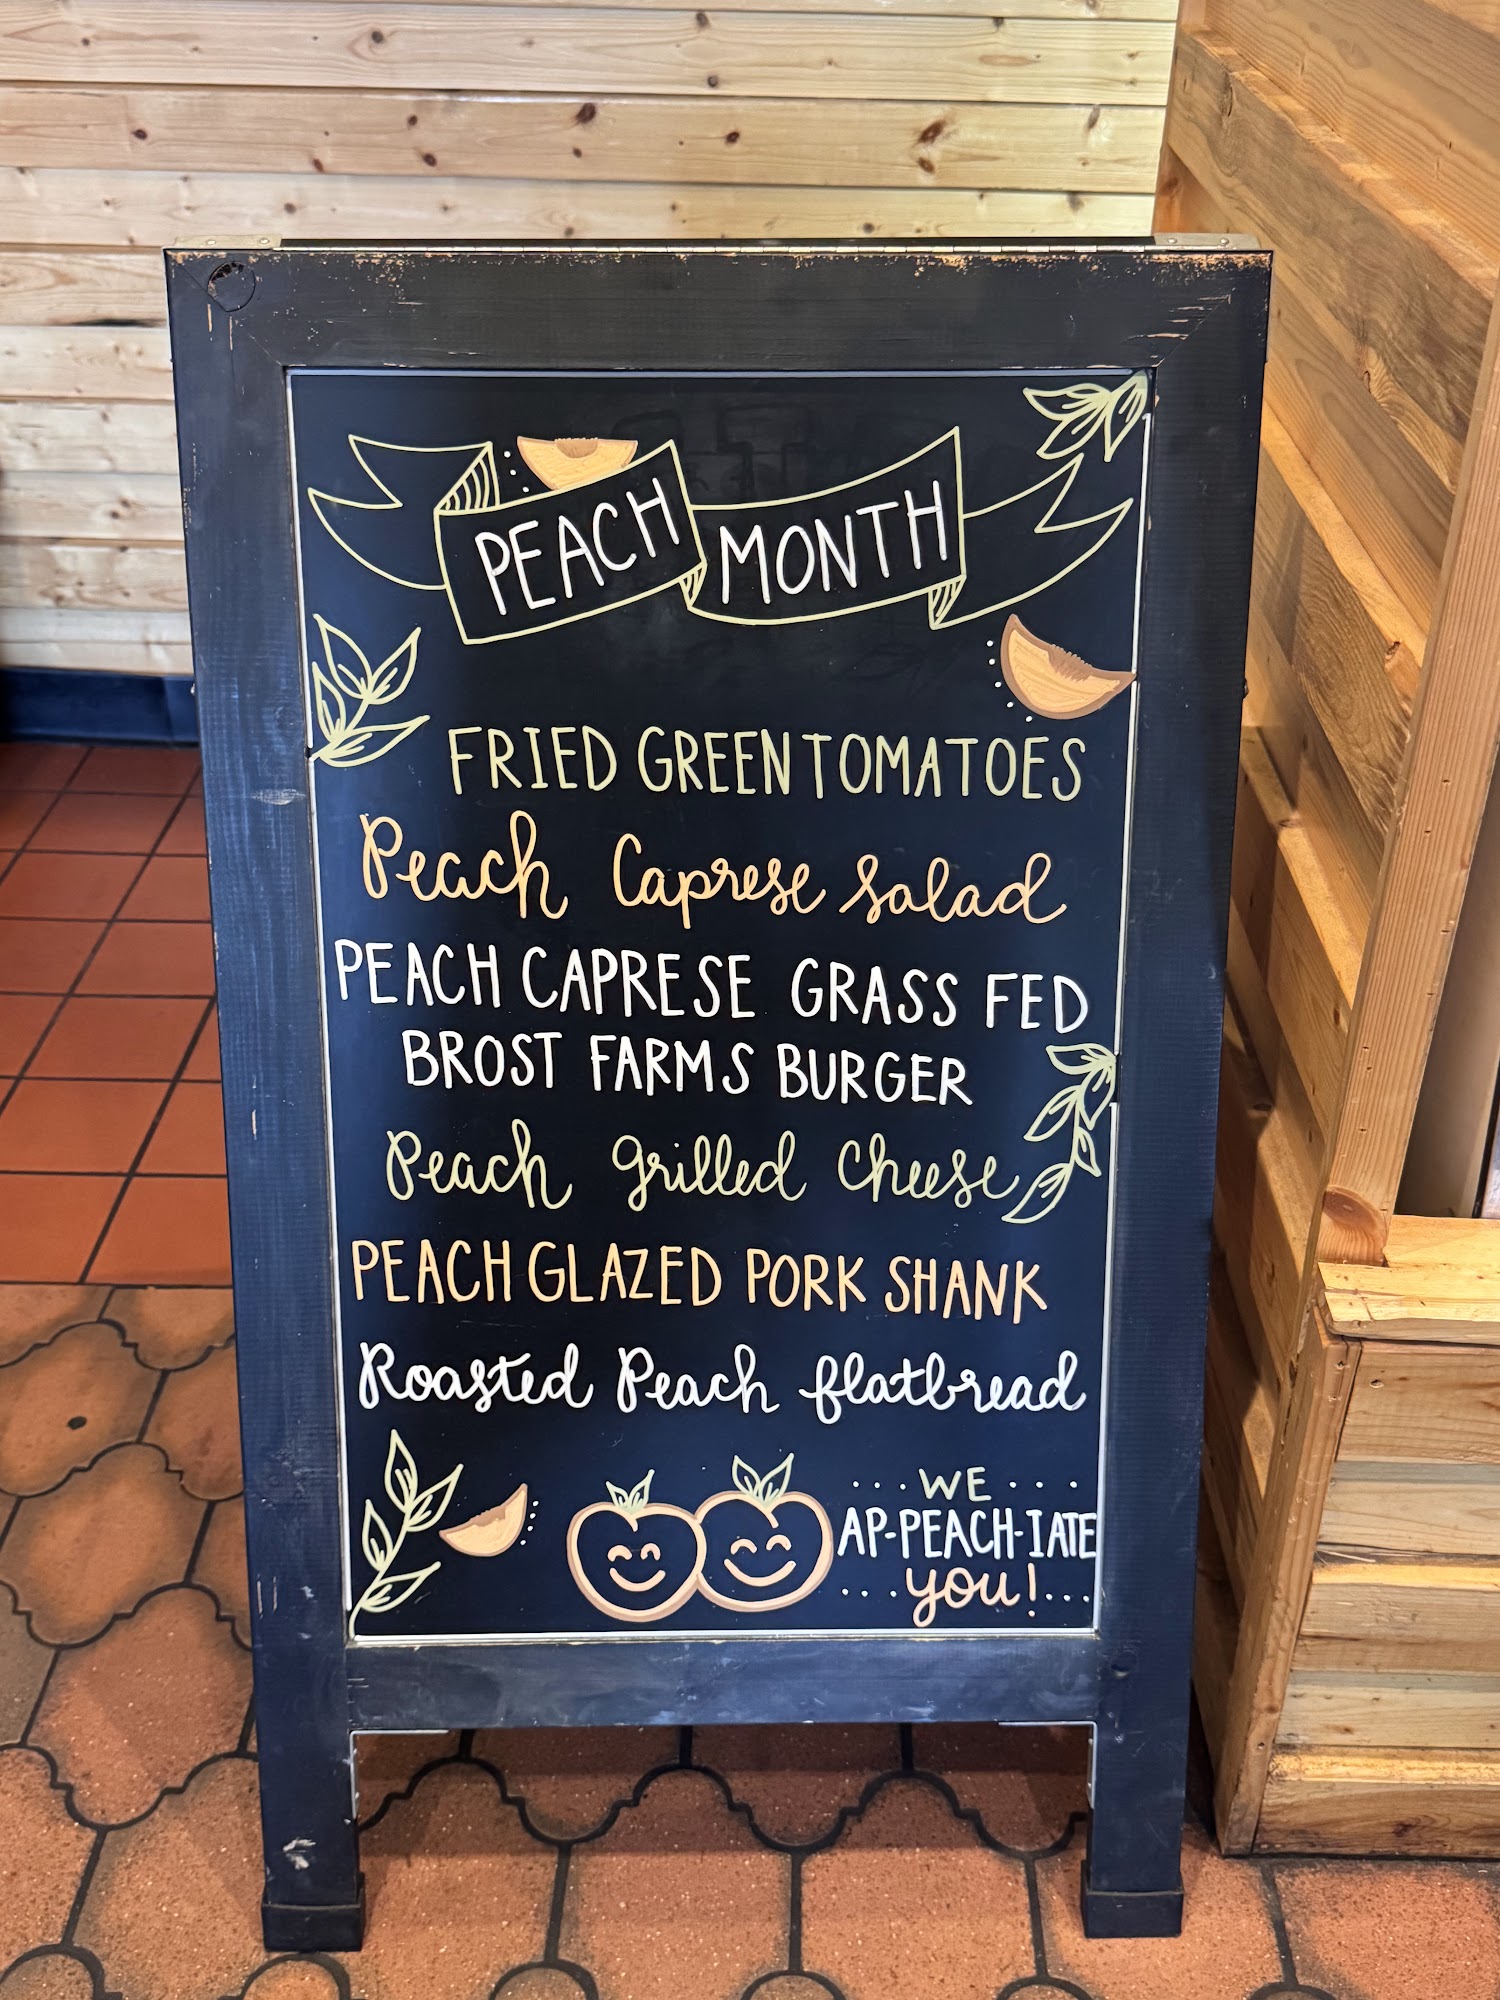 PEACH MONTH
FRIED GREEN TOMATOES
Peach Caprese Salad
PEACH CAPRESE GRASS FED
BROST FARMS BURGER
Peach Grilled Cheese
PEACH GLAZED PORK SHANK
Roasted Peach flatbread
...WE...
AP-PEACH-IATE
...you!...